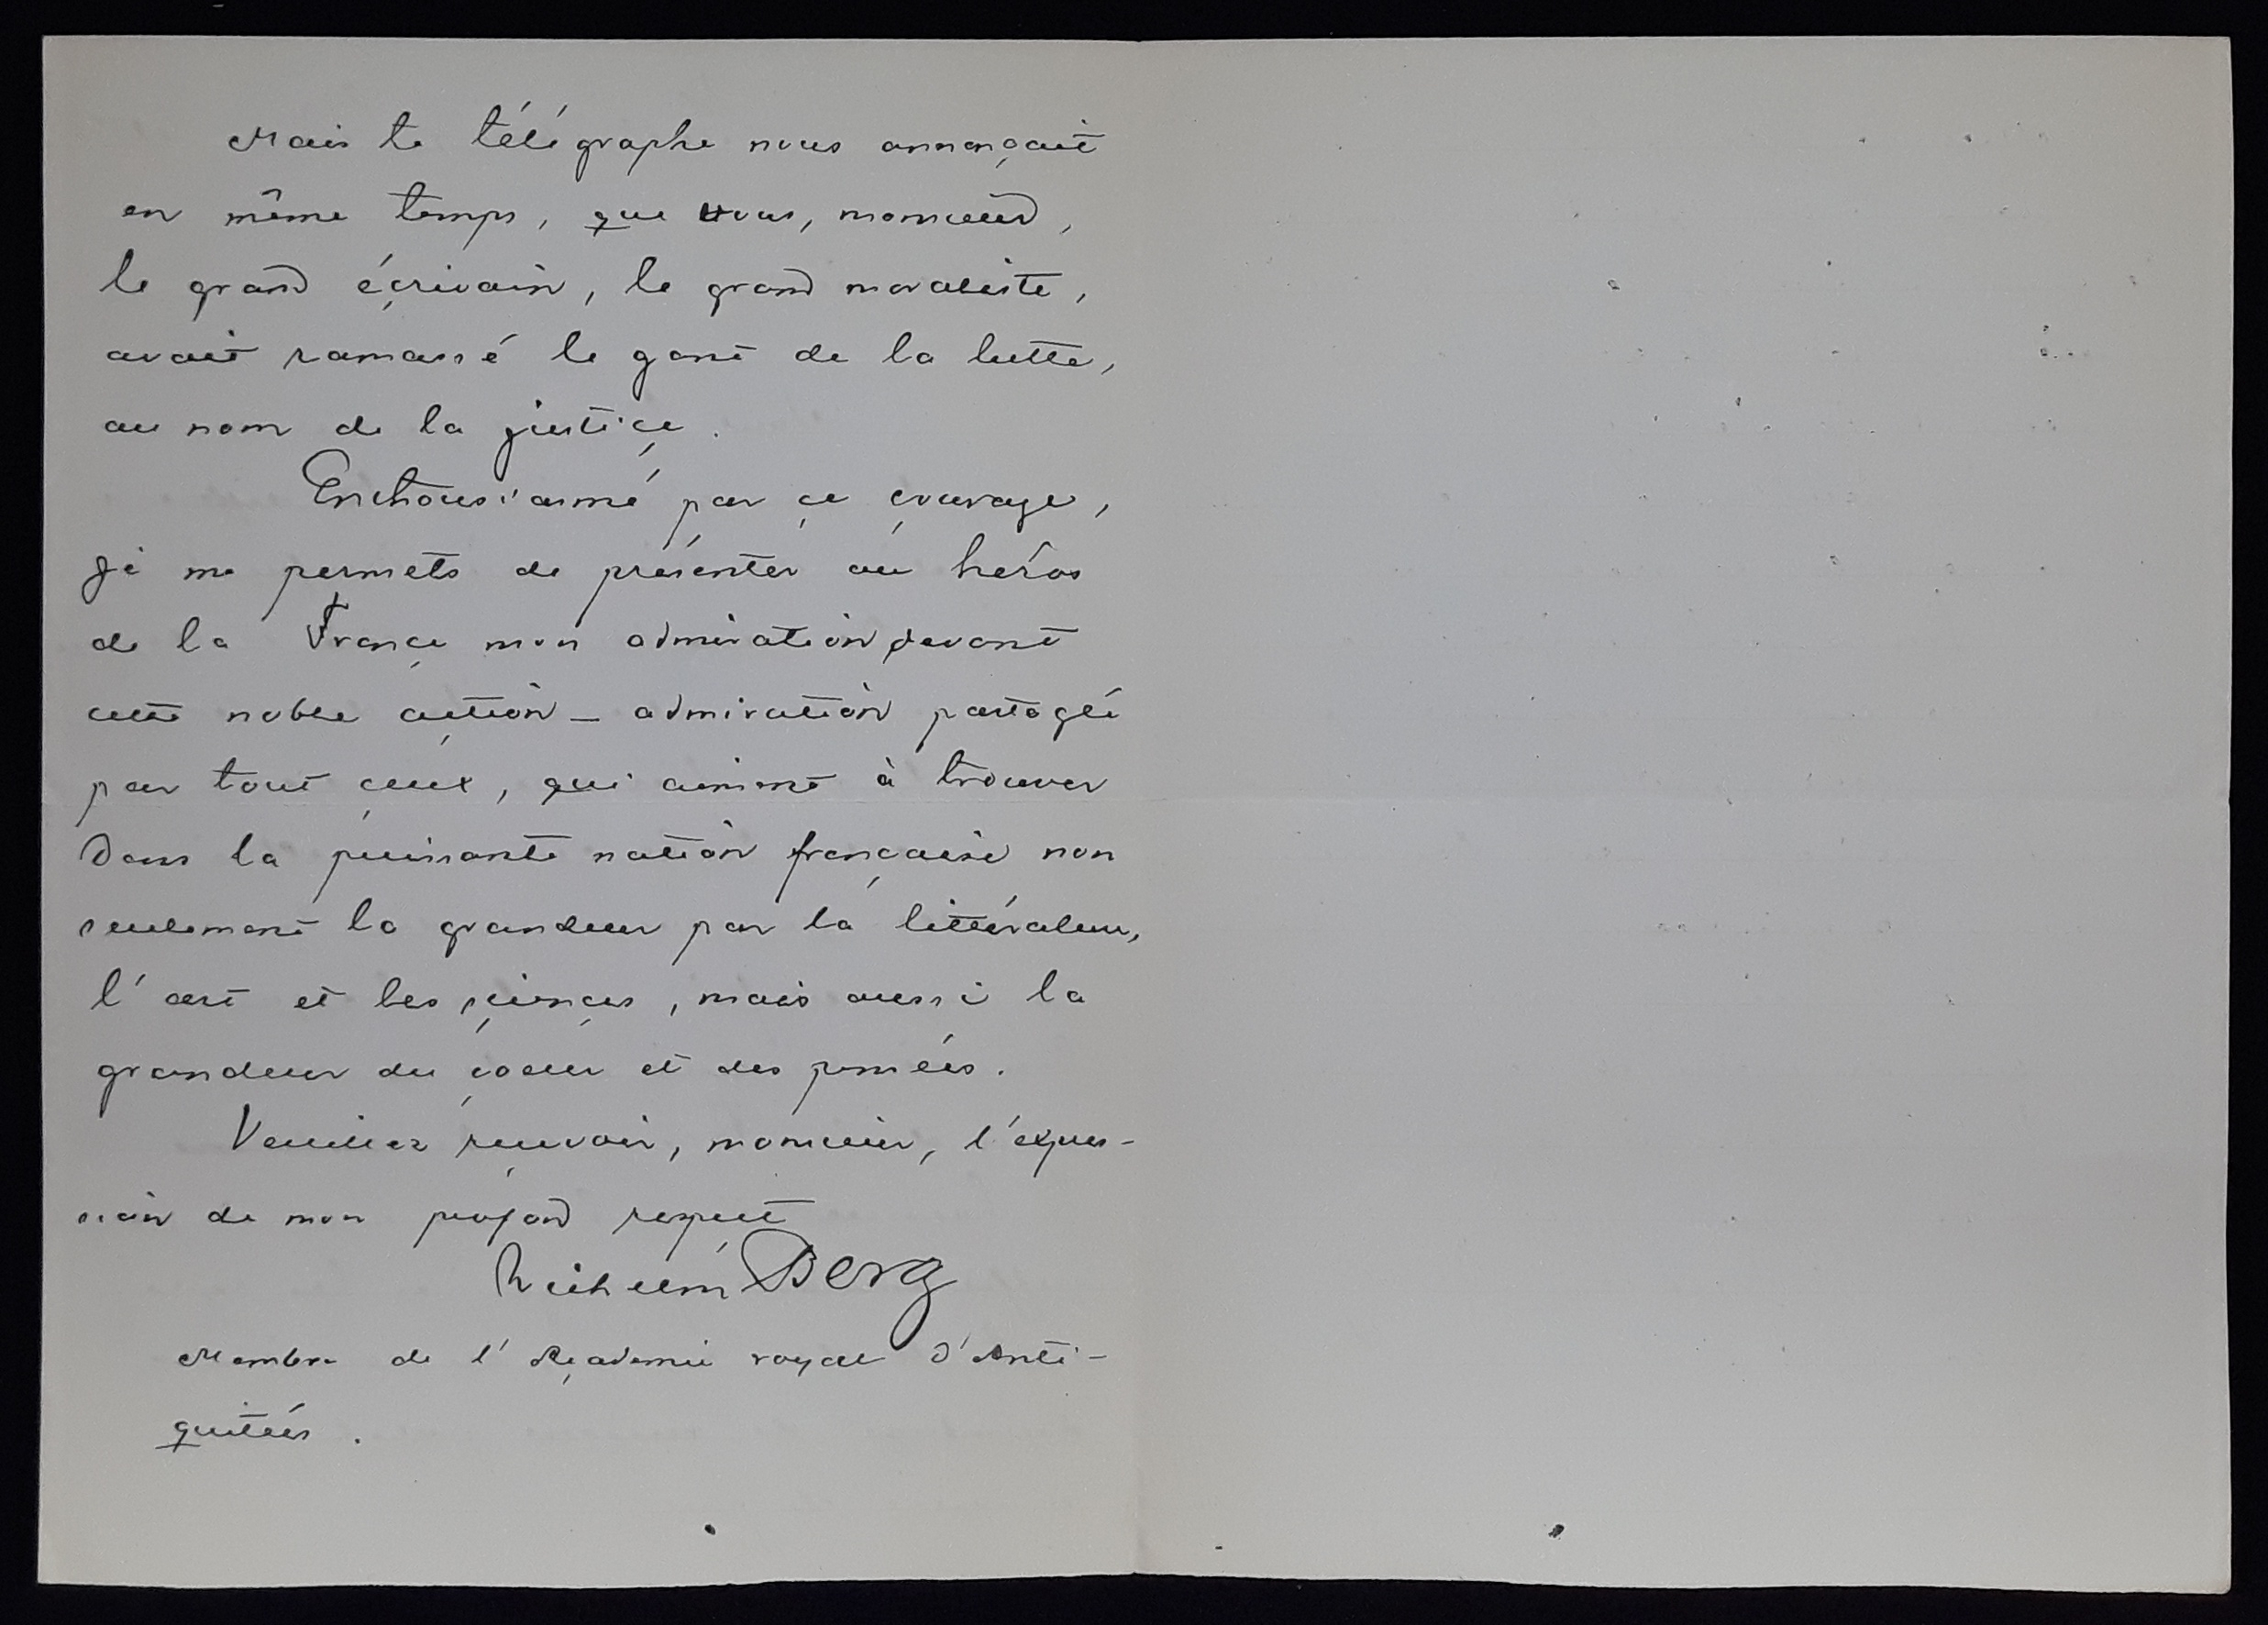 Mais le télégraphe nous annonçait
en même temps, que vous, monsieur,
le grand écrivain, le grand moraliste,
avait ramassé le gant de la lutte,
au nom de la justice.
Enthousiasmé par ce courage,
je me permets de présenter au héros
de la France mon admiration devant
cette noble action – admiration partagée
par tout ceux, qui aiment à trouver
dans la puissante nation française non
seulement la grandeur par la littérature,
l'art et les sciences, mais aussi la
grandeur du coeur et des pensées.
Veuillez recevoir, monsieur, l'expres-
sion de mon profond respect
Wilhelm Berg
Membre de l'Academie royale d'Anti-
quitées.